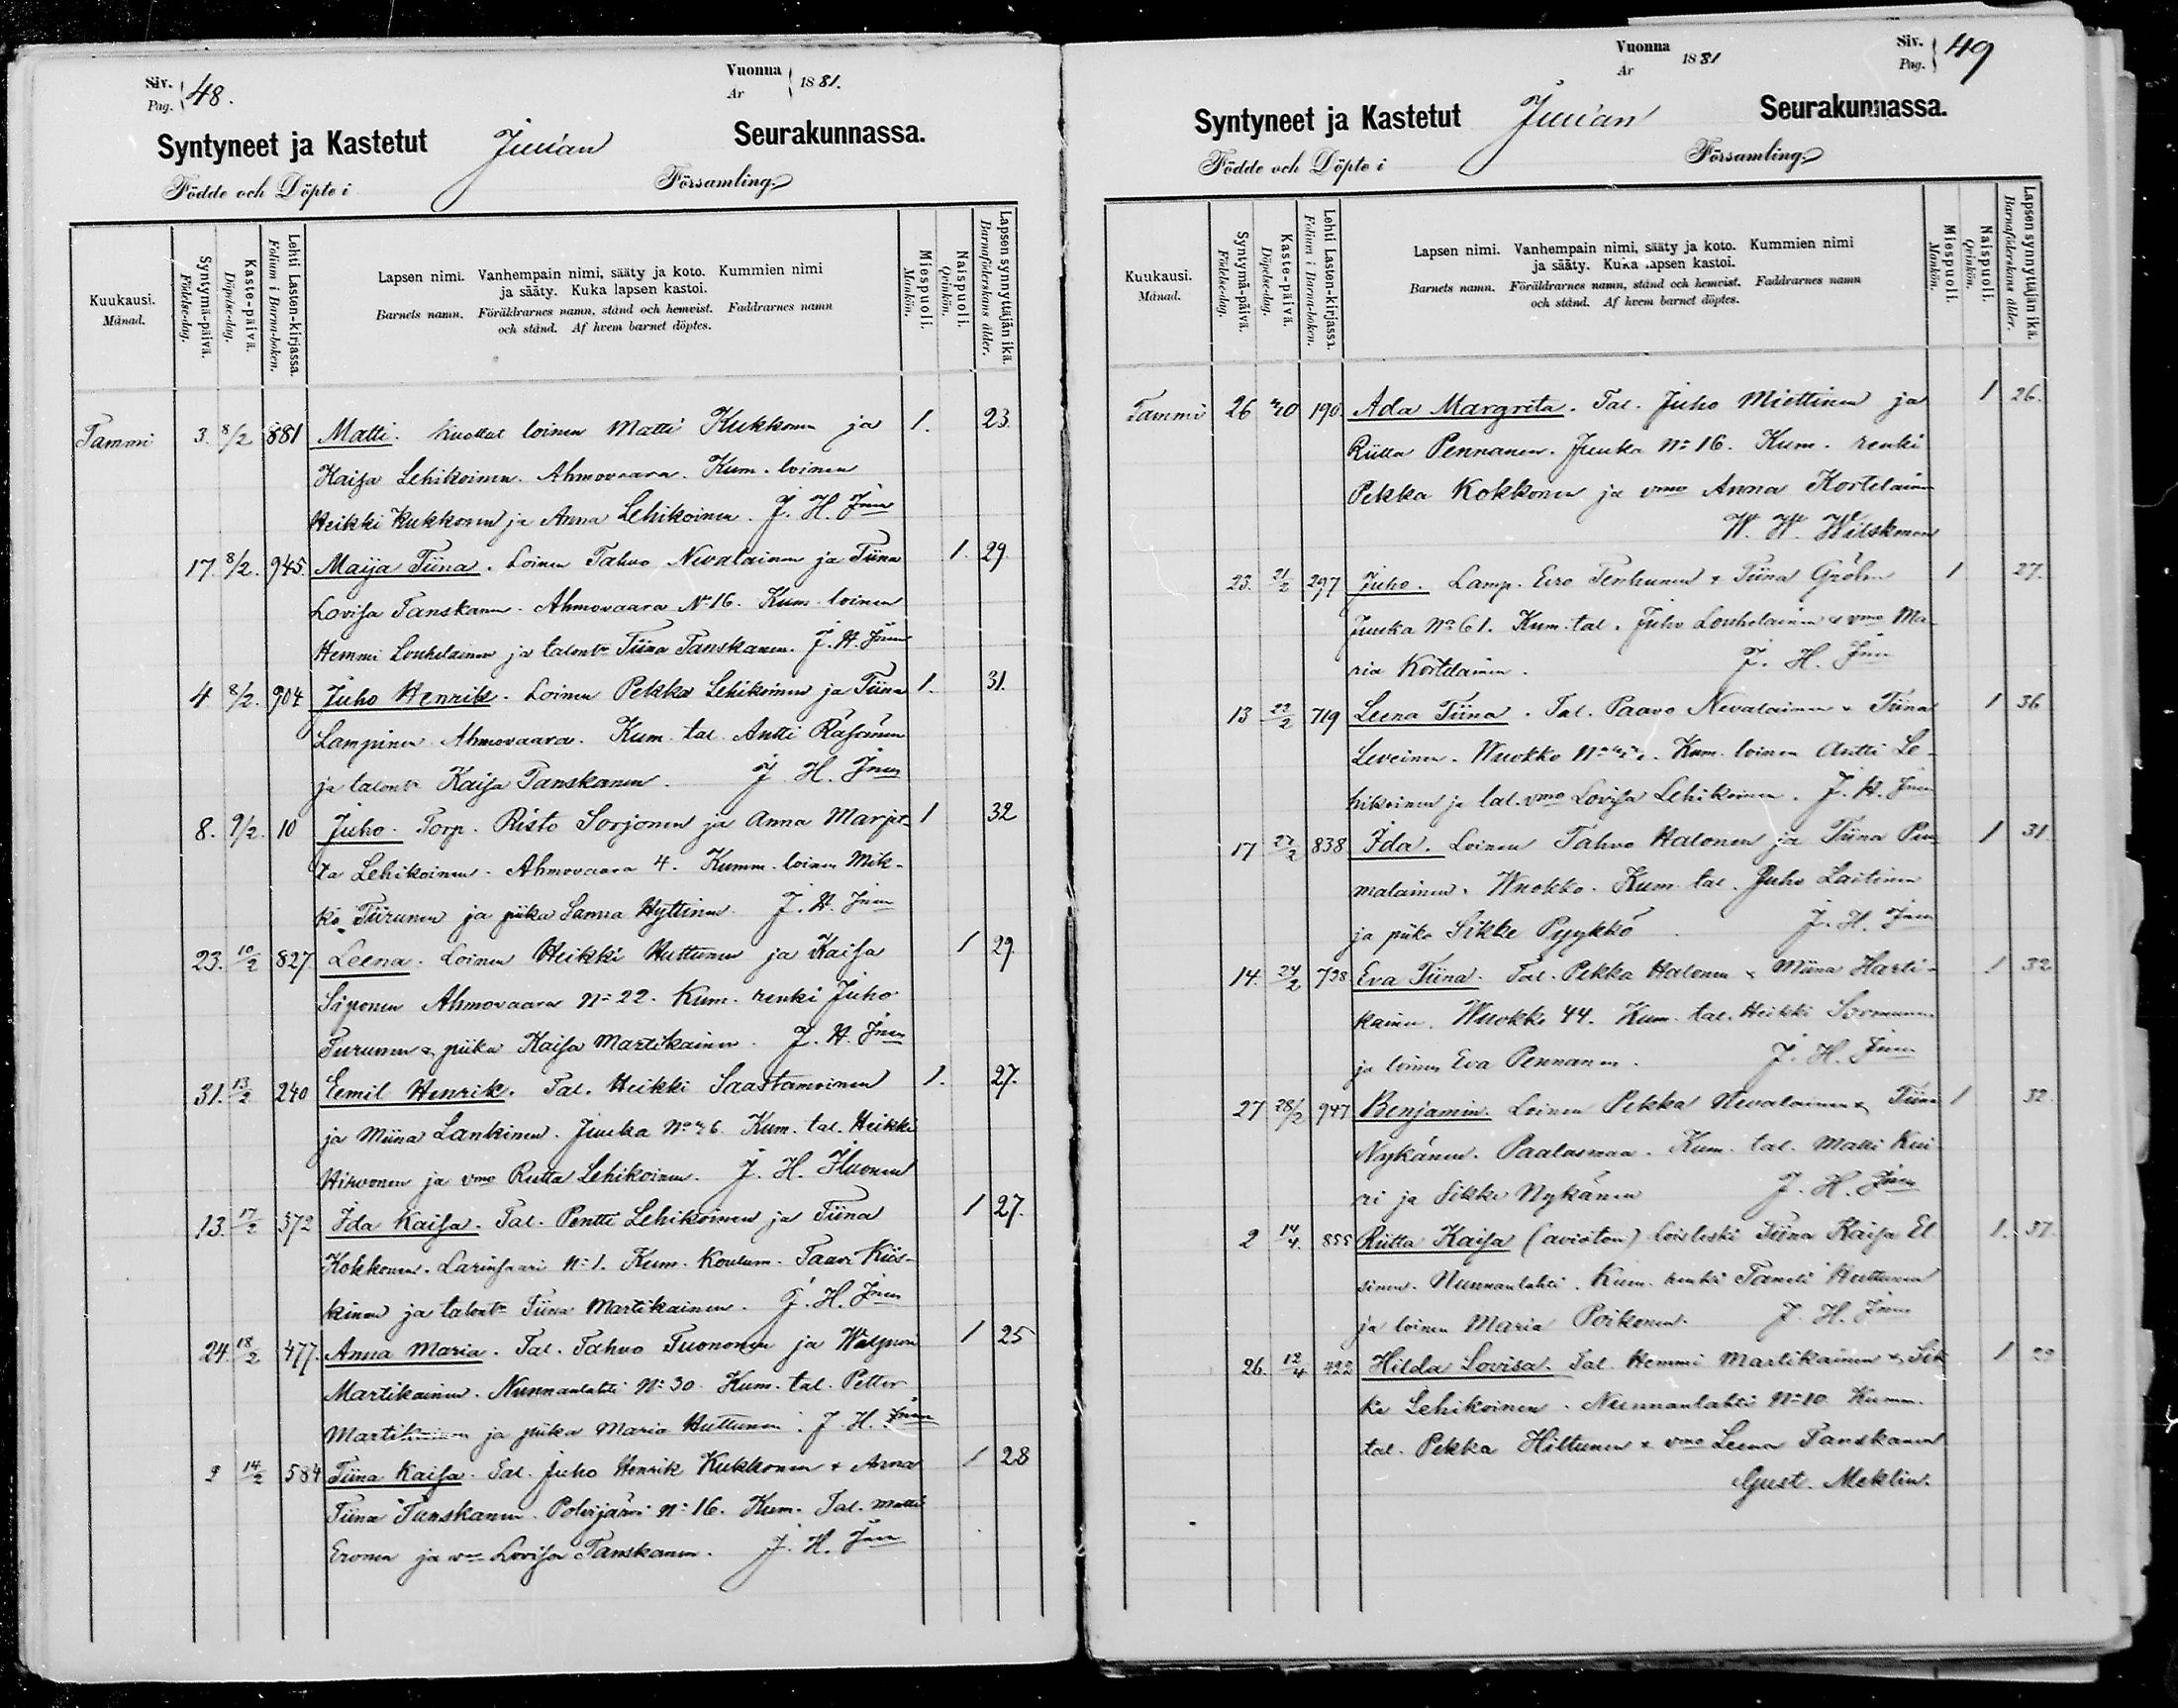 Siv. Pag. 48.
Vuonna År 1881.
Syntyneet ja Kastetut Juuan Seurakunnassa.
Födde och Döpte i Församling.
Kuukausi. Månad.
Syntymä-päivä. Födelse-dag.
Kaste-päivä. Döpelse-dag.
Lehti Lasten-kirjassa. Folium i Barna-boken.
Lapsen nimi. Vanhempain nimi, sääty ja koto. Kummien nimi
ja sääty. Kuka lapsen kastoi.
Barnets namn. Föräldrarnes namn, stånd och hemvist. Faddrarnes namn
och stånd. Af hvem barnet döptes.
Miespuoli. Mankön.
Naispuoli. Qvinkön.
Lapsen synnyttäjän ikä. Barnaföderskans ålder.
Tammi 3. 8/2 881 Matti. loinen Matti Kukkonen ja 1. 23.
Kaisa Lehikoinen. Ahmovaara. Kum. loinen
Heikki Kukkonen ja Anna Lehikoinen. J. H.
17. 8/2. 945. Maija Tiina. Loinen Tahvo Nevalainen ja Tiina 1. 29.
Lovisa Tanskanen. Ahmovaara No 16. Kum. loinen
Hemmi Louhelainen ja talont. Tiina Tanskanen. J. H.
4 8/2. 904 Juho Henrik. Loinen Pekka Lehikoinen ja Tiina 1. 31.
Lampinen. Ahmovaara. Kum. tal. Antti Räsänen
ja talont. Kaisa Tanskanen. J. H.
8. 9/2. 10 Juho. Torp. Risto Sorjonen ja Anna Marjet- 1 32
ta Lehikoinen. Ahmovaara 4. Kumm. loinen Mik-
ko Tiirunen ja piika Sanna Hyttinen. J. H.
23. 10/2 827. Leena. Loinen Heikki Huttunen ja Kaisa 1 29.
Siponen Ahmovaara No 22. Kum. renki Juho
Turunen & piika Kaisa Martikainen. J. H.
31. 13/2. 240 Eemil Henrik. Tal. Heikki Saastamoinen 1. 27.
ja Miina Lankinen. Juuka Kum. tal. Heikki
Hirvonen ja vmo Riitta Lehikoinen. J. H.
13. 17/2 572 Ida Kaisa. Tal. Pentti Lehikoinen ja Tiina 1 27.
Kokkonen. Larinsaari No 1. Kum. Koulum. Taavi Kiis-
kinen ja talont. Tiina Martikainen. J. H.
24. 18/2 477. Anna Maria. Tal. Tahvo Tuononen ja Walpuri 1 25
Martikainen. Nunnanlahti No 30. Kum. tal. Petter
Martikainen ja piika Maria Huttunen. J. H.
2 14/2 584 Tiina Kaisa. Tal. Juho Henrik Kukkonen & Anna 1 28
Tiina Tanskanen. Polvijärvi No 16. Kum. Tal. Matti
Eronen ja vmo Lovisa Tanskanen. J. H.
Vuonna År 1881
Siv. Pag. 49
Syntyneet ja Kastetut Juuan Seurakunnassa.
Födde och Döpte i Församling.
Kuukausi. Månad.
Syntymä-päivä. Födelse-dag.
Kaste-päivä. Döpelse-dag.
Lehti Lasten-kirjassa. Folium i Barna-boken.
Lapsen nimi. Vanhempain nimi, sääty ja koto. Kummien nimi
ja sääty. Kuka lapsen kastoi.
Barnets namn. Föräldrarnes namn, stånd och hemvist. Faddrarnes namn
och stånd. Af hvem barnet döptes.
Miespuoli. Mankön.
Naispuoli. Qvinkön.
Lapsen synnyttäjän ikä. Barnaföderskans ålder.
Tammi 26 190 Ada Margreta. Tal. Juho Miettinen ja 1 26.
Riitta Pennanen. Juuka No 16. Kum. renki
Pekka Kokkonen ja vmo Anna Kortelainen
W. W. Wilskman
23. 21/2 297 Juho. Lamp. Eero Tenhunen & Tiina Gröhn 1 27.
Juuka No 61. Kum. tal. Juho Louhelainen & vmo Ma-
ria Kortelainen. J. H.
13 23/2 719 Leena Tiina. Tal. Paavo Nevalainen & Tiina 1 36
Leveinen. Wuokko Kum. loinen Antti Le-
hikoinen ja tal. vmo Lovisa Lehikoinen. J. H.
17 27/2 838 Ida. Loinen Tahvo Halonen ja Tiina 1 31.
malainen. Wuokko. Kum. tal. Juho Laitinen
ja piika Sikke Pyykkö. J. H.
14. 24/2 738 Eva Tiina. Tal. Pekka Halonen & Miina Harti- 1 32
kainen. Wuokko 44. Kum. tal. Heikki Sormunen
ja loinen Eva Pennanen. J. H.
27 28/2 947 Benjamin. Loinen Pekka Nevalainen & Tiina 1 32.
Nykänen. Paalasmaa. Kum. tal. Matti Kui-
ri ja Sikke Nykänen J. H.
2 14/4. 855 Riitta Kaisa (avioton) loisleski Tiina Kaisa El- 1. 37.
sinen. Nunnanlahti. Kum. renki Taneli Huttunen
ja loinen Maria Poikonen. J. H.
26. 12/4 422 Hilda Lovisa. Tal. Hemmi Martikainen & Sik- 1 29
ke Lehikoinen. Nunnanlahti No 10. Kumm.
tal. Pekka Hiltunen & vmo Leena Tanskanen
Gust. Meklin.